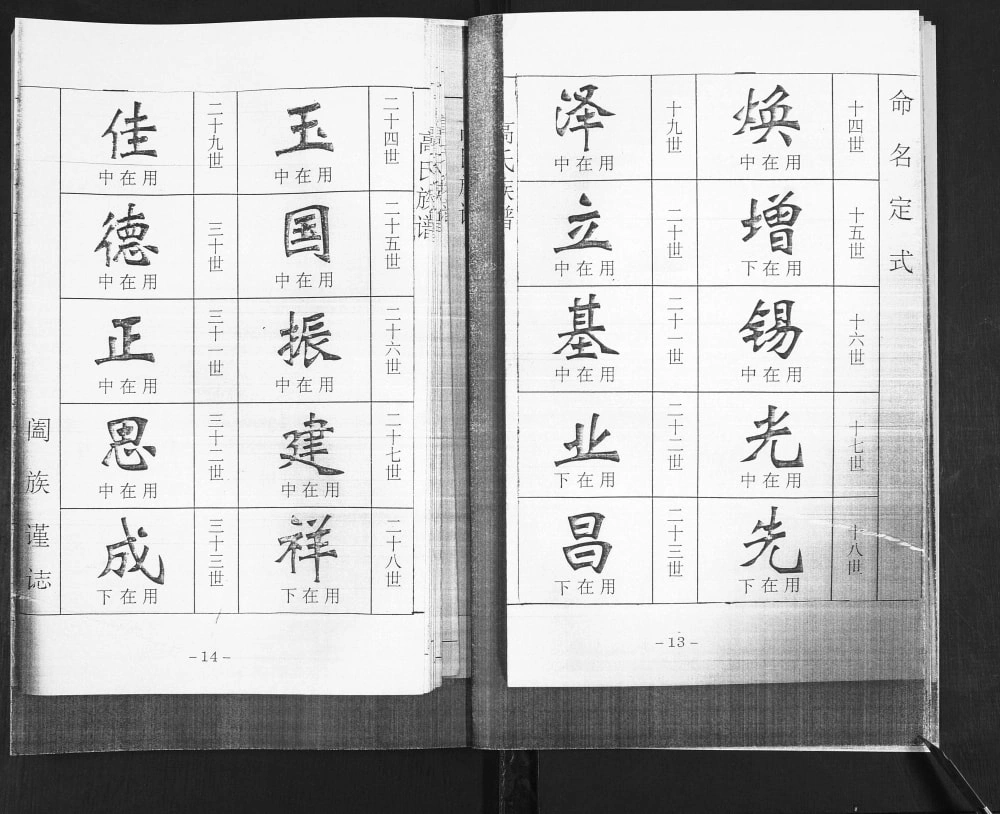 命名定式
十四世
焕
用在中
十五世
增
用在下
十六世
锡
用在中
十七世
光
用在中
十八世
先
用在下
十九世
泽
用在中
二十世
立
用在中
二十一世
基
用在中
二十二世
业
用在下
二十三世
昌
用在下
-13-
高氏族谱
高氏族谱
二十四世
玉
用在中
二十五世
国
用在中
二十六世
振
用在中
二十七世
建
用在中
二十八世
祥
用在下
二十九世
佳
用在中
三十世
德
用在中
三十一世
正
用在中
三十二世
思
用在中
三十三世
成
用在下
阖族谨志
-14-